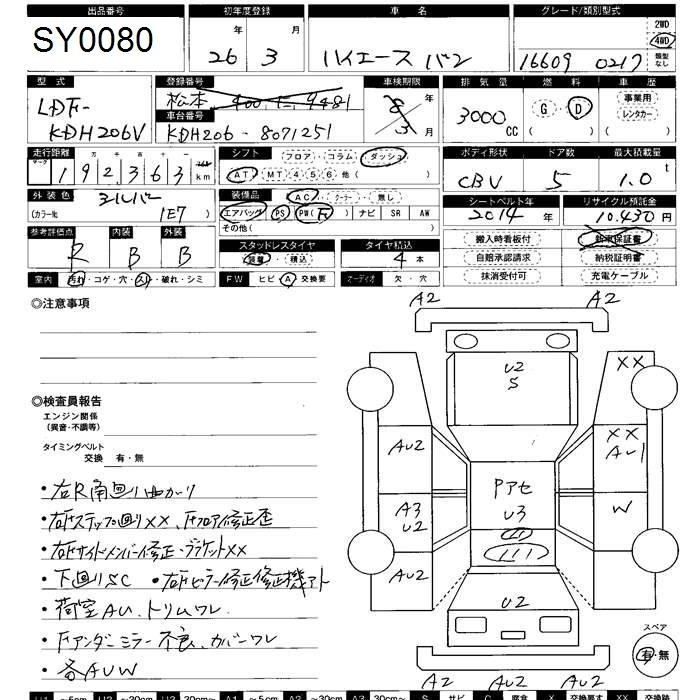 出品番号 初年度登録 車名 グレード/類別型式
SY0080 26年 3月 ハイエースバン 16609 0217 2WD 4WD 類型なし
型式 登録番号 車検期限 排気量 燃料 車歴
LDF- 松本 400 4481 8年 3000CC G D ( ) 事業用 レンタカー ( )
KDH206V 車台番号 3月
KDH206-8071251
走行距離 シフト フロア・コラム ダッシュ ボディ形状 ドア数 最大積載量
マーク 十 万 千 百 十 一
192363 km AT MT 4 5 6 他( ) CBV 5 1.0t
外装色 装備品 AC クーラー 無し シートベルト年 リサイクル預託金
シルバー エアバッグ PS PW( ) ナビ SR AW 2014年 10,430円
(カラーNo. 1E7) その他( )
参考評価点 内装 外装 スタッドレスタイヤ タイヤ積込 搬入時看板付 新車保証書
R B B 装着・積込 4本 自賠承認請求 納税証明書
室内 汚れ・コゲ・穴・スリ・破れ・シミ FW ヒビ・A・交換要 オーディオ 欠・穴 抹消受付可 充電ケーブル
◎注意事項
A2 A2
XX
U2
S
◎検査員報告
エンジン関係
(異音・不調等)
タイミングベルト
交換 有・無
AU2 XX
AU1
A3 U2 Pアセ U3 W
AU2
U2
・右R角回り曲がり
・右Fステップ回りXX、Fフロア修正歪
・右Fサイドメンバー修正・ブラケットXX
・下回りSC ・右Fピラー修正修正機アト
・荷室AU、トリムワレ、
・Fアンダーミラー不良、カバーワレ
・各AUW
スペア
有・無
A2 AU2 AU2
U1 ~5cm U2 ~30cm U3 30cm~ A1 ~5cm A2 ~30cm A3 30cm~ S サビ C 腐食 X 交換要す XX 交換跡